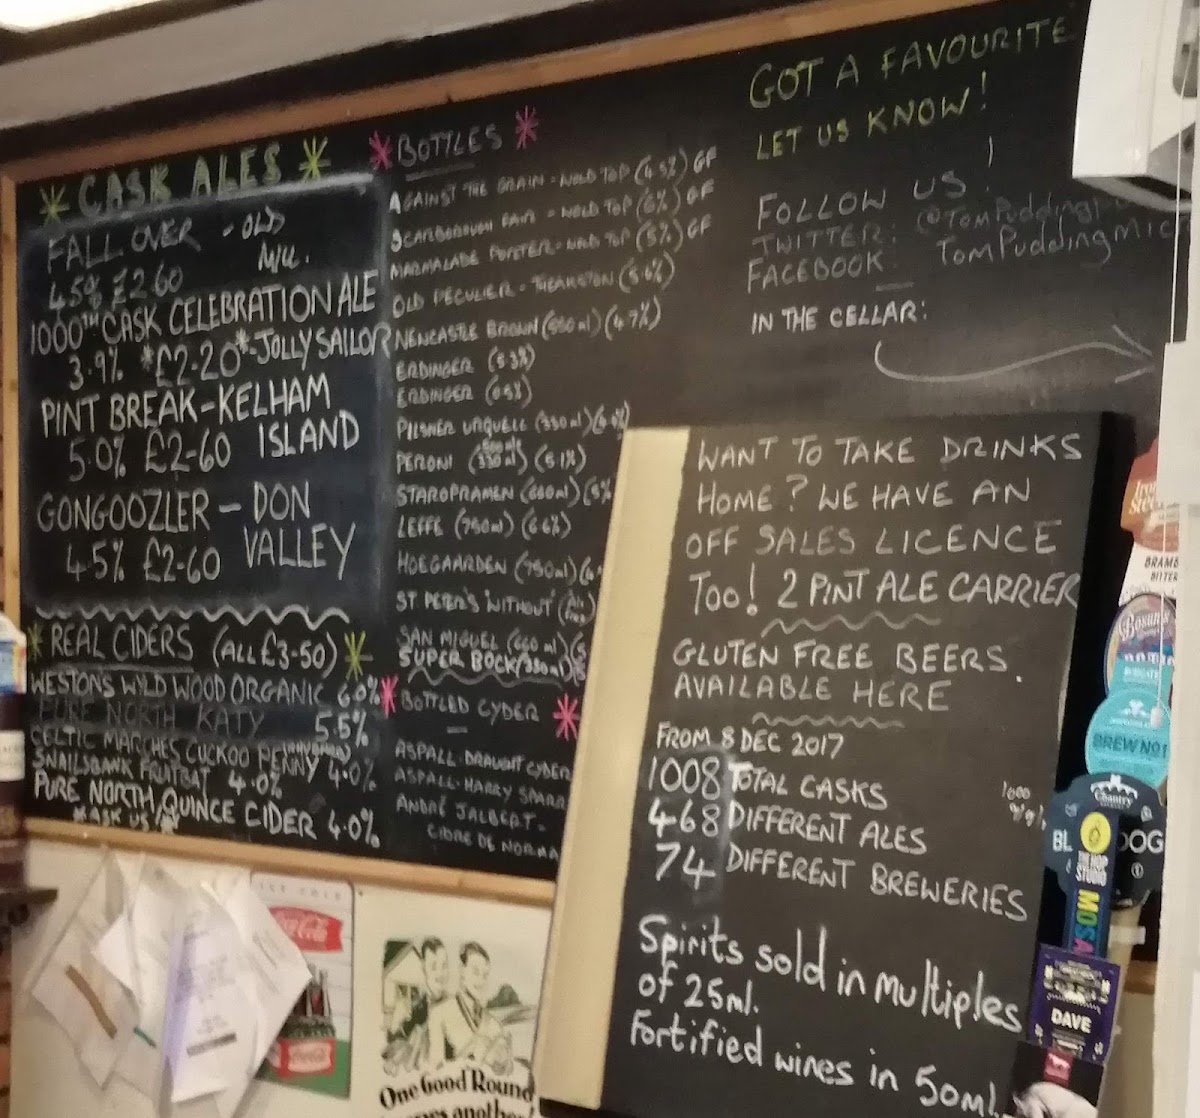 CASK ALES
FALL OVER - OLD
MILL.
4.5% £2.60
1000TH CASK CELEBRATION ALE
3.9% *£2-20*-JOLLY SAILOR
PINT BREAK-KELHAM
ISLAND
5.0% £2-60
GONGOOZLER - DON
VALLEY
4.5% £2-60
REAL CIDERS (ALL £3-50)
WESTONS WYLD WOOD ORGANIC 6.0%
PURE NORTH KATY 5.5%
CELTIC MARCHES CUCKOO PENNY 4.0%
SNAILSBANK FRUITBAT 4.0%
PURE NORTH QUINCE CIDER 4.0%
*ASK US!*
BOTTLES
AGAINST THE GRAIN - WOLD TOP (4.5%) GF
SCARBOROUGH FAIR - WOLD TOP (6%) GF
MARMALADE PORTER - WOLD TOP (5%) GF
OLD PECULIER - THEAKSTON (5.6%)
NEWCASTLE BROWN (550ml) (4.7%)
ERDINGER (5.3%)
ERDINGER (0.5%)
PILSNER URQUELL (330ml)
PERONI (330ml) (5.1%)
STAROPRAMEN (660ml) (5%
LEFFE (750ml) (6.6%)
HOEGAARDEN (750ml)
ST. PETER'S 'WITHOUT'
SAN MIGUEL (660ml) (5
SUPER BOCK (330ml)
BOTTLED CYDER
ASPALL-DRAUGHT CYDER
ASPALL-HARRY SPARR
ANDRÉ JALBERT-
CIDRE DE NORMA
GOT A FAVOURITE
LET US KNOW!
FOLLOW US!
TWITTER: @TomPudding
FACEBOOK: TomPuddingMic
IN THE CELLAR:
WANT TO TAKE DRINKS
HOME? WE HAVE AN
OFF SALES LICENCE
TOO! 2 PINT ALE CARRIER
GLUTEN FREE BEERS.
AVAILABLE HERE
FROM 8 DEC 2017
1008 TOTAL CASKS
468 DIFFERENT ALES
74 DIFFERENT BREWERIES
Spirits sold in multiples
of 25ml.
Fortified wines in 50ml.
BREW NO1
Chantry
BL DOG
THE HOP
STUDIO
MOSA
DAVE
Coca-Cola
One Good Round